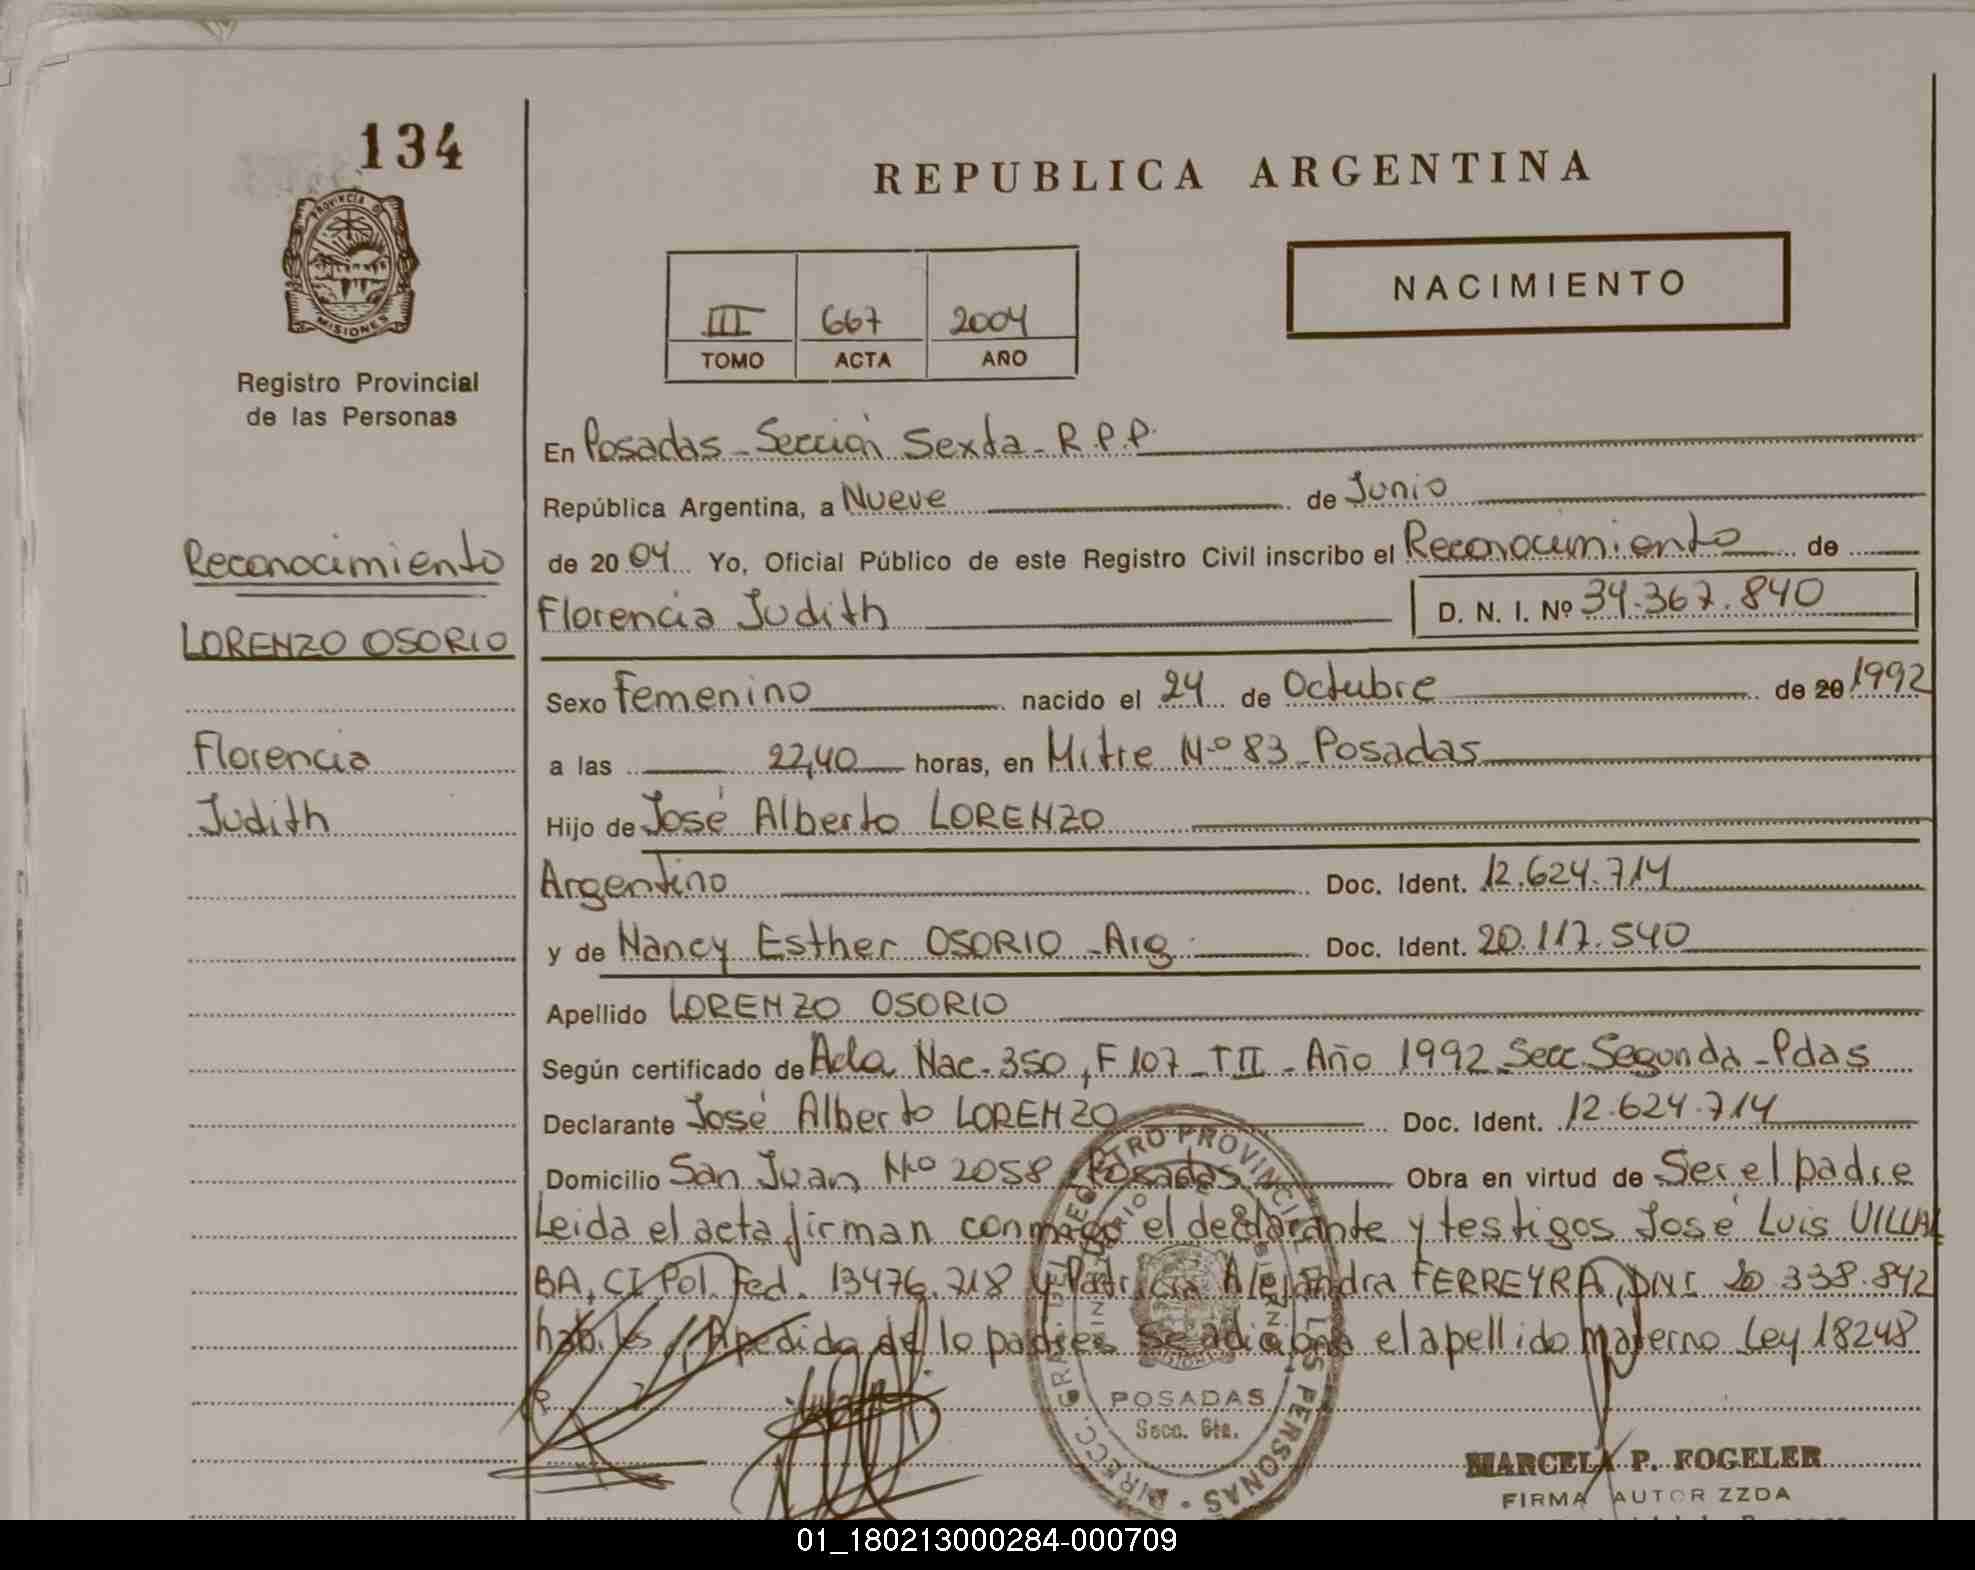 134
REPUBLICA ARGENTINA
PROVINCIA DE
MISIONES
NACIMIENTO
III 667 2004
TOMO ACTA AÑO
Registro Provincial
de las Personas
En Posadas - Sección Sexta - R.P.P.
República Argentina, a Nueve de Junio
de 2004 Yo, Oficial Público de este Registro Civil inscribo el Reconocimiento de
Reconocimiento
Florencia Judith D. N. I. Nº 34.367.840
LORENZO OSORIO
Sexo Femenino nacido el 24 de Octubre de 20 1992
Florencia
a las 22,40 horas, en Mitre Nº 83 - Posadas
Judith
Hijo de José Alberto LORENZO
Argentino Doc. Ident. 12.624.714
y de Nancy Esther OSORIO - Arg. Doc. Ident. 20.117.540
Apellido LORENZO OSORIO
Según certificado de Acta Nac. 350, F 107 - T II - Año 1992 - Secc. Segunda - Pdas
Declarante José Alberto LORENZO Doc. Ident. 12.624.714
Domicilio San Juan Nº 2058 - Posadas Obra en virtud de Ser el padre
Leida el acta firman conmigo el declarante y testigos José Luis VILLAL
BA, CI Pol. Fed. 13476.718 y Patricia Alejandra FERREYRA, DNI 20.338.842
habiles // Apedido de lo padres se adiciona el apellido materno Ley 18248
POSADAS
Secc. 6ta.
MARCELA P. FOGELER
FIRMA AUTORIZZDA
01_180213000284-000709